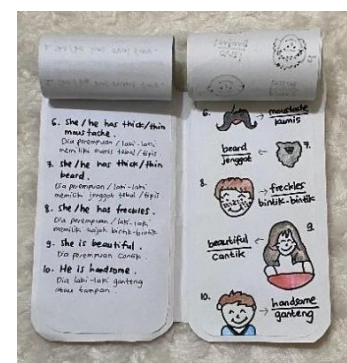 6. she/he has thick/thin
moustache.
Dia perempuan/laki-laki
memiliki kumis tebal/tipis
7. she/he has thick/thin
beard.
Dia perempuan/laki-laki
memiliki jenggot tebal/tipis
8. she/he has freckles.
Dia perempuan/laki-laki
memiliki wajah bintik-bintik
9. She is beautiful.
Dia perempuan cantik.
10. He is handsome.
Dia laki-laki ganteng
atau tampan.
6.
moustache
kumis
beard
jenggot
7.
8.
freckles
bintik-bintik
9.
beautiful
cantik
10.
handsome
ganteng